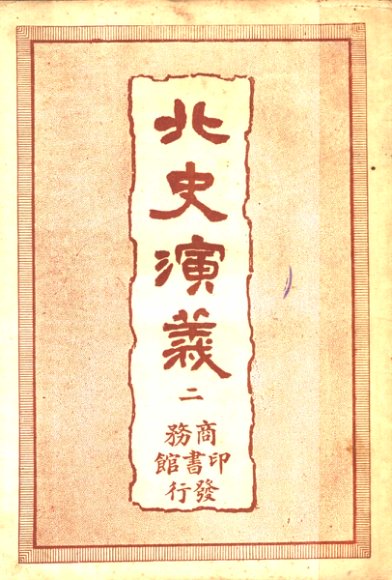 北史演義
二
商務
印書館
發行